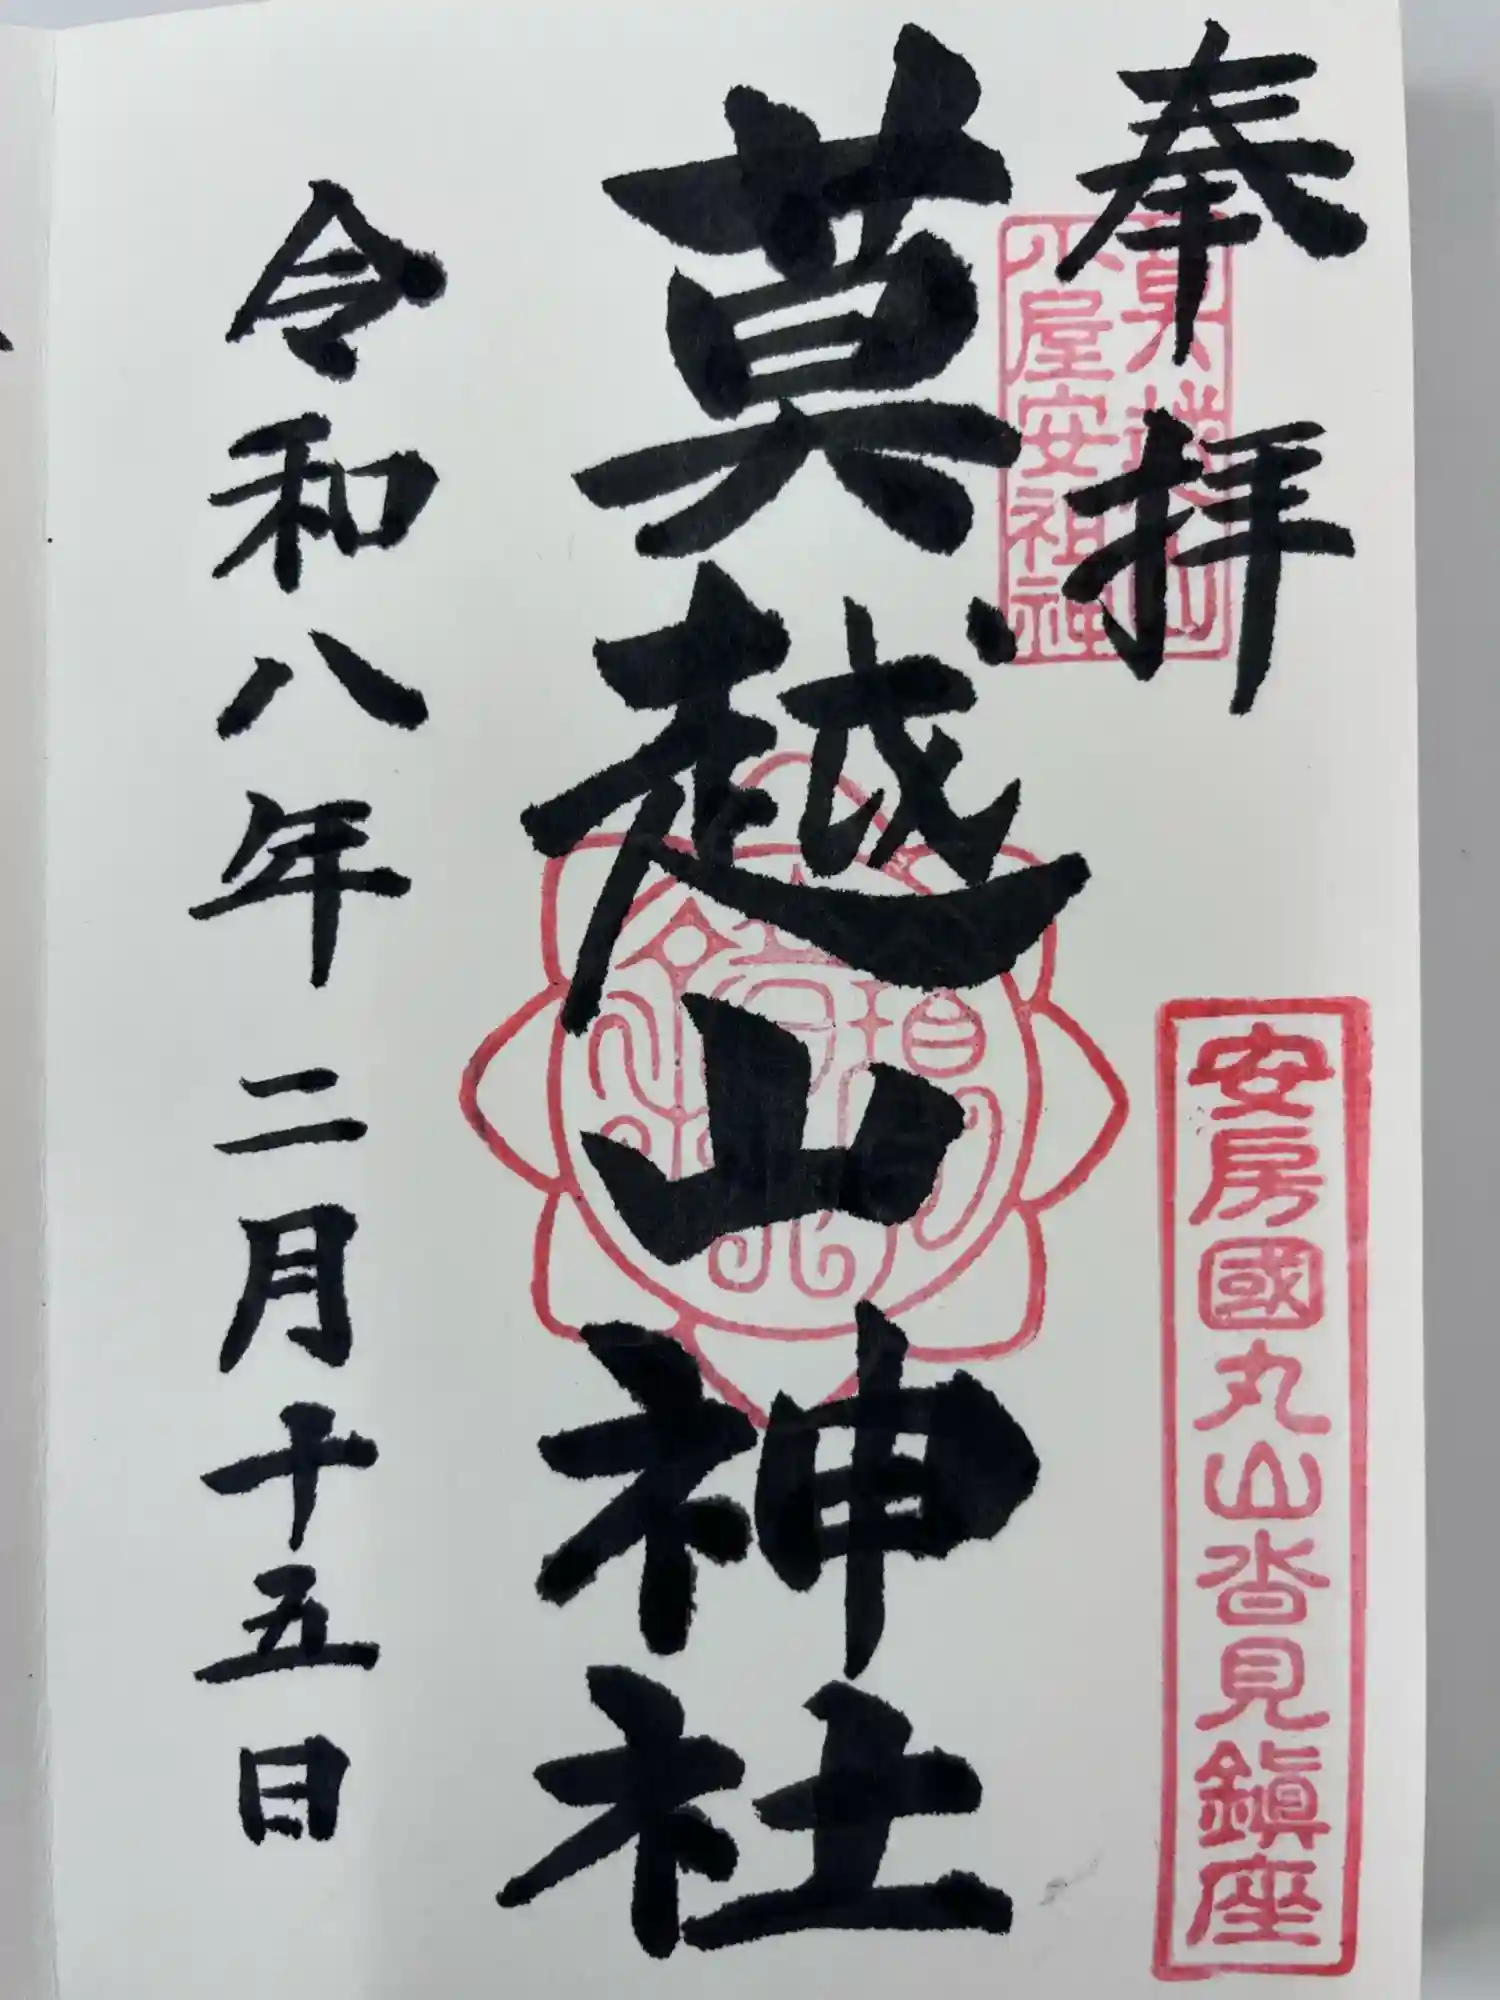 奉拝
莫越山
小屋安祖神
安房國丸山沓見鎮座
莫越山神社
令和八年二月十五日